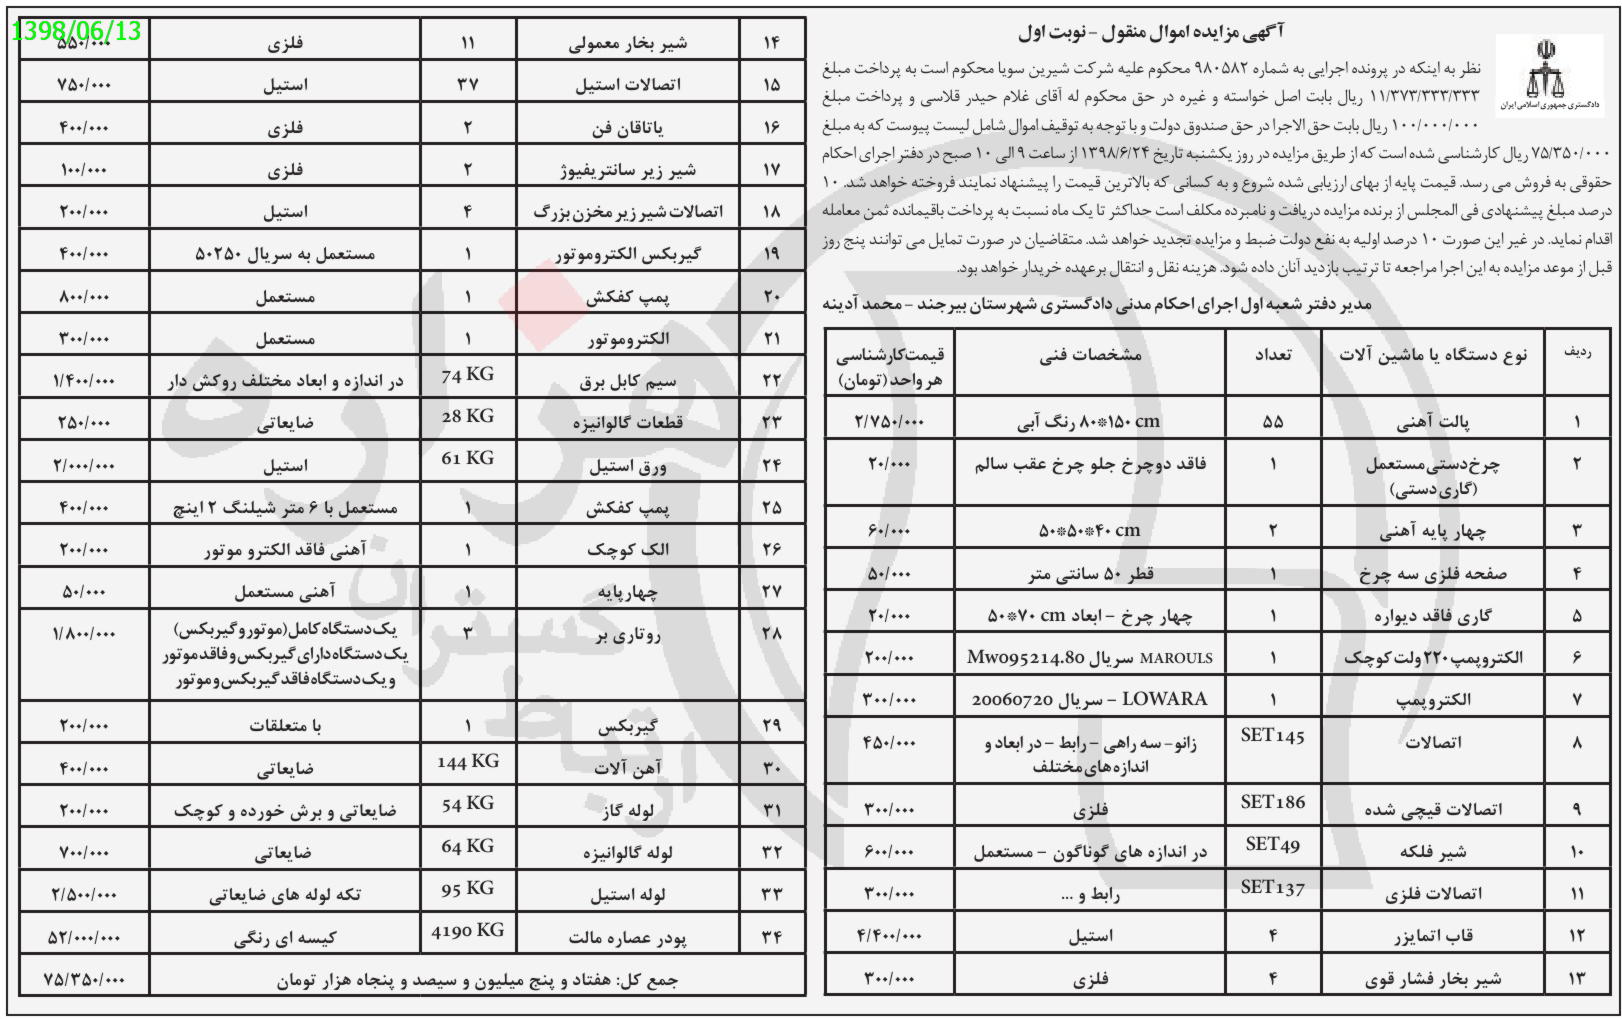 1398/06/13
آگهی مزایده اموال منقول - نوبت اول
دادگستری جمهوری اسلامی ایران
نظر به اینکه در پرونده اجرایی به شماره ۹۸۰۵۸۲ محکوم علیه شرکت شیرین سویا محکوم است به پرداخت مبلغ
۱۱/۳۷۳/۳۳۳/۳۳۳ ریال بابت اصل خواسته و غیره در حق محکوم له آقای غلام حیدر قلاسی و پرداخت مبلغ
۱۰۰/۰۰۰/۰۰۰ ریال بابت حق الاجرا در حق صندوق دولت و با توجه به توقیف اموال شامل لیست پیوست که به مبلغ
۷۵/۳۵۰/۰۰۰ ریال کارشناسی شده است که از طریق مزایده در روز یکشنبه تاریخ ۱۳۹۸/۶/۲۴ از ساعت ۹ الی ۱۰ صبح در دفتر اجرای احکام
حقوقی به فروش می رسد. قیمت پایه از بهای ارزیابی شده شروع و به کسانی که بالاترین قیمت را پیشنهاد نمایند فروخته خواهد شد. ۱۰
درصد مبلغ پیشنهادی فی المجلس از برنده مزایده دریافت و نامبرده مکلف است حداکثر تا یک ماه نسبت به پرداخت باقیمانده ثمن معامله
اقدام نماید. در غیر این صورت ۱۰ درصد اولیه به نفع دولت ضبط و مزایده تجدید خواهد شد. متقاضیان در صورت تمایل می توانند پنج روز
قبل از موعد مزایده به این اجرا مراجعه تا ترتیب بازدید آنان داده شود. هزینه نقل و انتقال برعهده خریدار خواهد بود.
مدیر دفتر شعبه اول اجرای احکام مدنی دادگستری شهرستان بیرجند - محمد آدینه
ردیف نوع دستگاه یا ماشین آلات تعداد مشخصات فنی قیمت کارشناسی
هر واحد (تومان)
۱ پالت آهنی ۵۵ ۸۰*۱۵۰ cm رنگ آبی ۲/۷۵۰/۰۰۰
۲ چرخ دستی مستعمل ۱ فاقد دو چرخ جلو چرخ عقب سالم ۲۰/۰۰۰
(گاری دستی)
۳ چهار پایه آهنی ۲ ۵۰*۵۰*۴۰ cm ۶۰/۰۰۰
۴ صفحه فلزی سه چرخ ۱ قطر ۵۰ سانتی متر ۵۰/۰۰۰
۵ گاری فاقد دیواره ۱ چهار چرخ - ابعاد ۵۰*۷۰ cm ۲۰/۰۰۰
۶ الکتروپمپ ۲۲۰ ولت کوچک ۱ MAROULS سریال Mw095214.80 ۲۰۰/۰۰۰
۷ الکتروپمپ ۱ LOWARA - سریال 20060720 ۳۰۰/۰۰۰
۸ اتصالات SET145 زانو - سه راهی - رابط - در ابعاد و ۴۵۰/۰۰۰
اندازه های مختلف
۹ اتصالات قیچی شده SET186 فلزی ۳۰۰/۰۰۰
۱۰ شیر فلکه SET49 در اندازه های گوناگون - مستعمل ۶۰۰/۰۰۰
۱۱ اتصالات فلزی SET137 رابط و ... ۳۰۰/۰۰۰
۱۲ قاب اتمایزر ۴ استیل ۴/۴۰۰/۰۰۰
۱۳ شیر بخار فشار قوی ۴ فلزی ۳۰۰/۰۰۰
۱۴ شیر بخار معمولی ۱۱ فلزی ۵۵۰/۰۰۰
۱۵ اتصالات استیل ۳۷ استیل ۷۵۰/۰۰۰
۱۶ یاتاقان فن ۲ فلزی ۴۰۰/۰۰۰
۱۷ شیر زیر سانتریفیوژ ۲ فلزی ۱۰۰/۰۰۰
۱۸ اتصالات شیر زیر مخزن بزرگ ۴ استیل ۲۰۰/۰۰۰
۱۹ گیربکس الکتروموتور ۱ مستعمل به سریال ۵۰۲۵۰ ۴۰۰/۰۰۰
۲۰ پمپ کفکش ۱ مستعمل ۸۰۰/۰۰۰
۲۱ الکتروموتور ۱ مستعمل ۳۰۰/۰۰۰
۲۲ سیم کابل برق 74 KG در اندازه و ابعاد مختلف روکش دار ۱/۴۰۰/۰۰۰
۲۳ قطعات گالوانیزه 28 KG ضایعاتی ۲۵۰/۰۰۰
۲۴ ورق استیل 61 KG استیل ۲/۰۰۰/۰۰۰
۲۵ پمپ کفکش ۱ مستعمل با ۶ متر شیلنگ ۲ اینچ ۴۰۰/۰۰۰
۲۶ الک کوچک ۱ آهنی فاقد الکترو موتور ۲۰۰/۰۰۰
۲۷ چهارپایه ۱ آهنی مستعمل ۵۰/۰۰۰
۲۸ روتاری بر ۳ یک دستگاه کامل (موتور و گیربکس) ۱/۸۰۰/۰۰۰
یک دستگاه دارای گیربکس و فاقد موتور
و یک دستگاه فاقد گیربکس و موتور
۲۹ گیربکس ۱ با متعلقات ۲۰۰/۰۰۰
۳۰ آهن آلات 144 KG ضایعاتی ۴۰۰/۰۰۰
۳۱ لوله گاز 54 KG ضایعاتی و برش خورده و کوچک ۲۰۰/۰۰۰
۳۲ لوله گالوانیزه 64 KG ضایعاتی ۷۰۰/۰۰۰
۳۳ لوله استیل 95 KG تکه لوله های ضایعاتی ۲/۵۰۰/۰۰۰
۳۴ پودر عصاره مالت 4190 KG کیسه ای رنگی ۵۲/۰۰۰/۰۰۰
جمع کل: هفتاد و پنج میلیون و سیصد و پنجاه هزار تومان ۷۵/۳۵۰/۰۰۰
هزاره
گستران
ارتباط